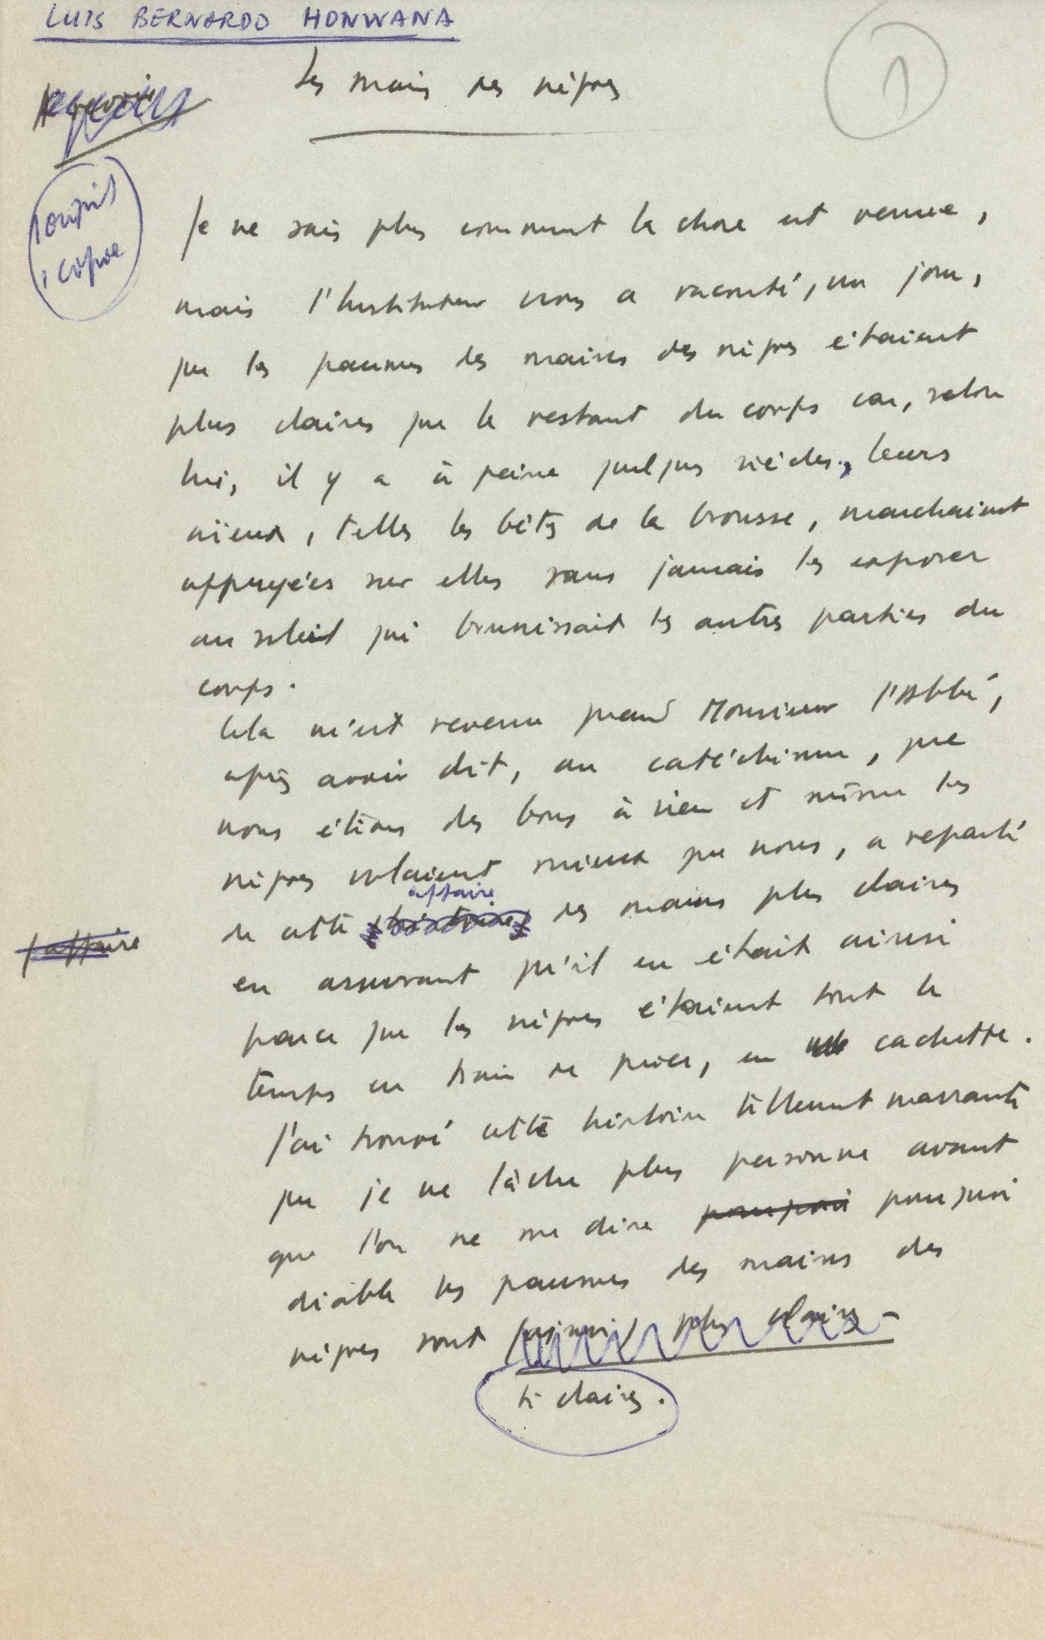 LUIS BERNARDO HONWANA
1
Les mains des nègres
copie
Je ne sais plus comment la chose est venue,
mais l'Instituteur nous a raconté, un jour,
que les paumes des mains des nègres étaient
plus claires que le restant du corps car, selon
lui, il y a à peine quelques siècles, leurs
aïeux, telles les bêtes de la brousse, marchaient
appuyées sur elles sans jamais les exposer
au soleil qui brunissait les autres parties du
corps.
Cela m'est revenu quand Monsieur l'Abbé,
après avoir dit, au catéchisme, que
nous étions des bons à rien et même les
nègres valaient mieux que nous, a reparlé
affaire
de cette histoire des mains plus claires
l'affaire
en assurant qu'il en était ainsi
parce que les nègres étaient tout le
temps en train de prier, en cachette.
J'ai trouvé cette histoire tellement marrante
que je ne lâche plus personne avant
que l'on ne me dise pourquoi pourquoi
diable les paumes des mains des
nègres sont plus claires.
si claires.